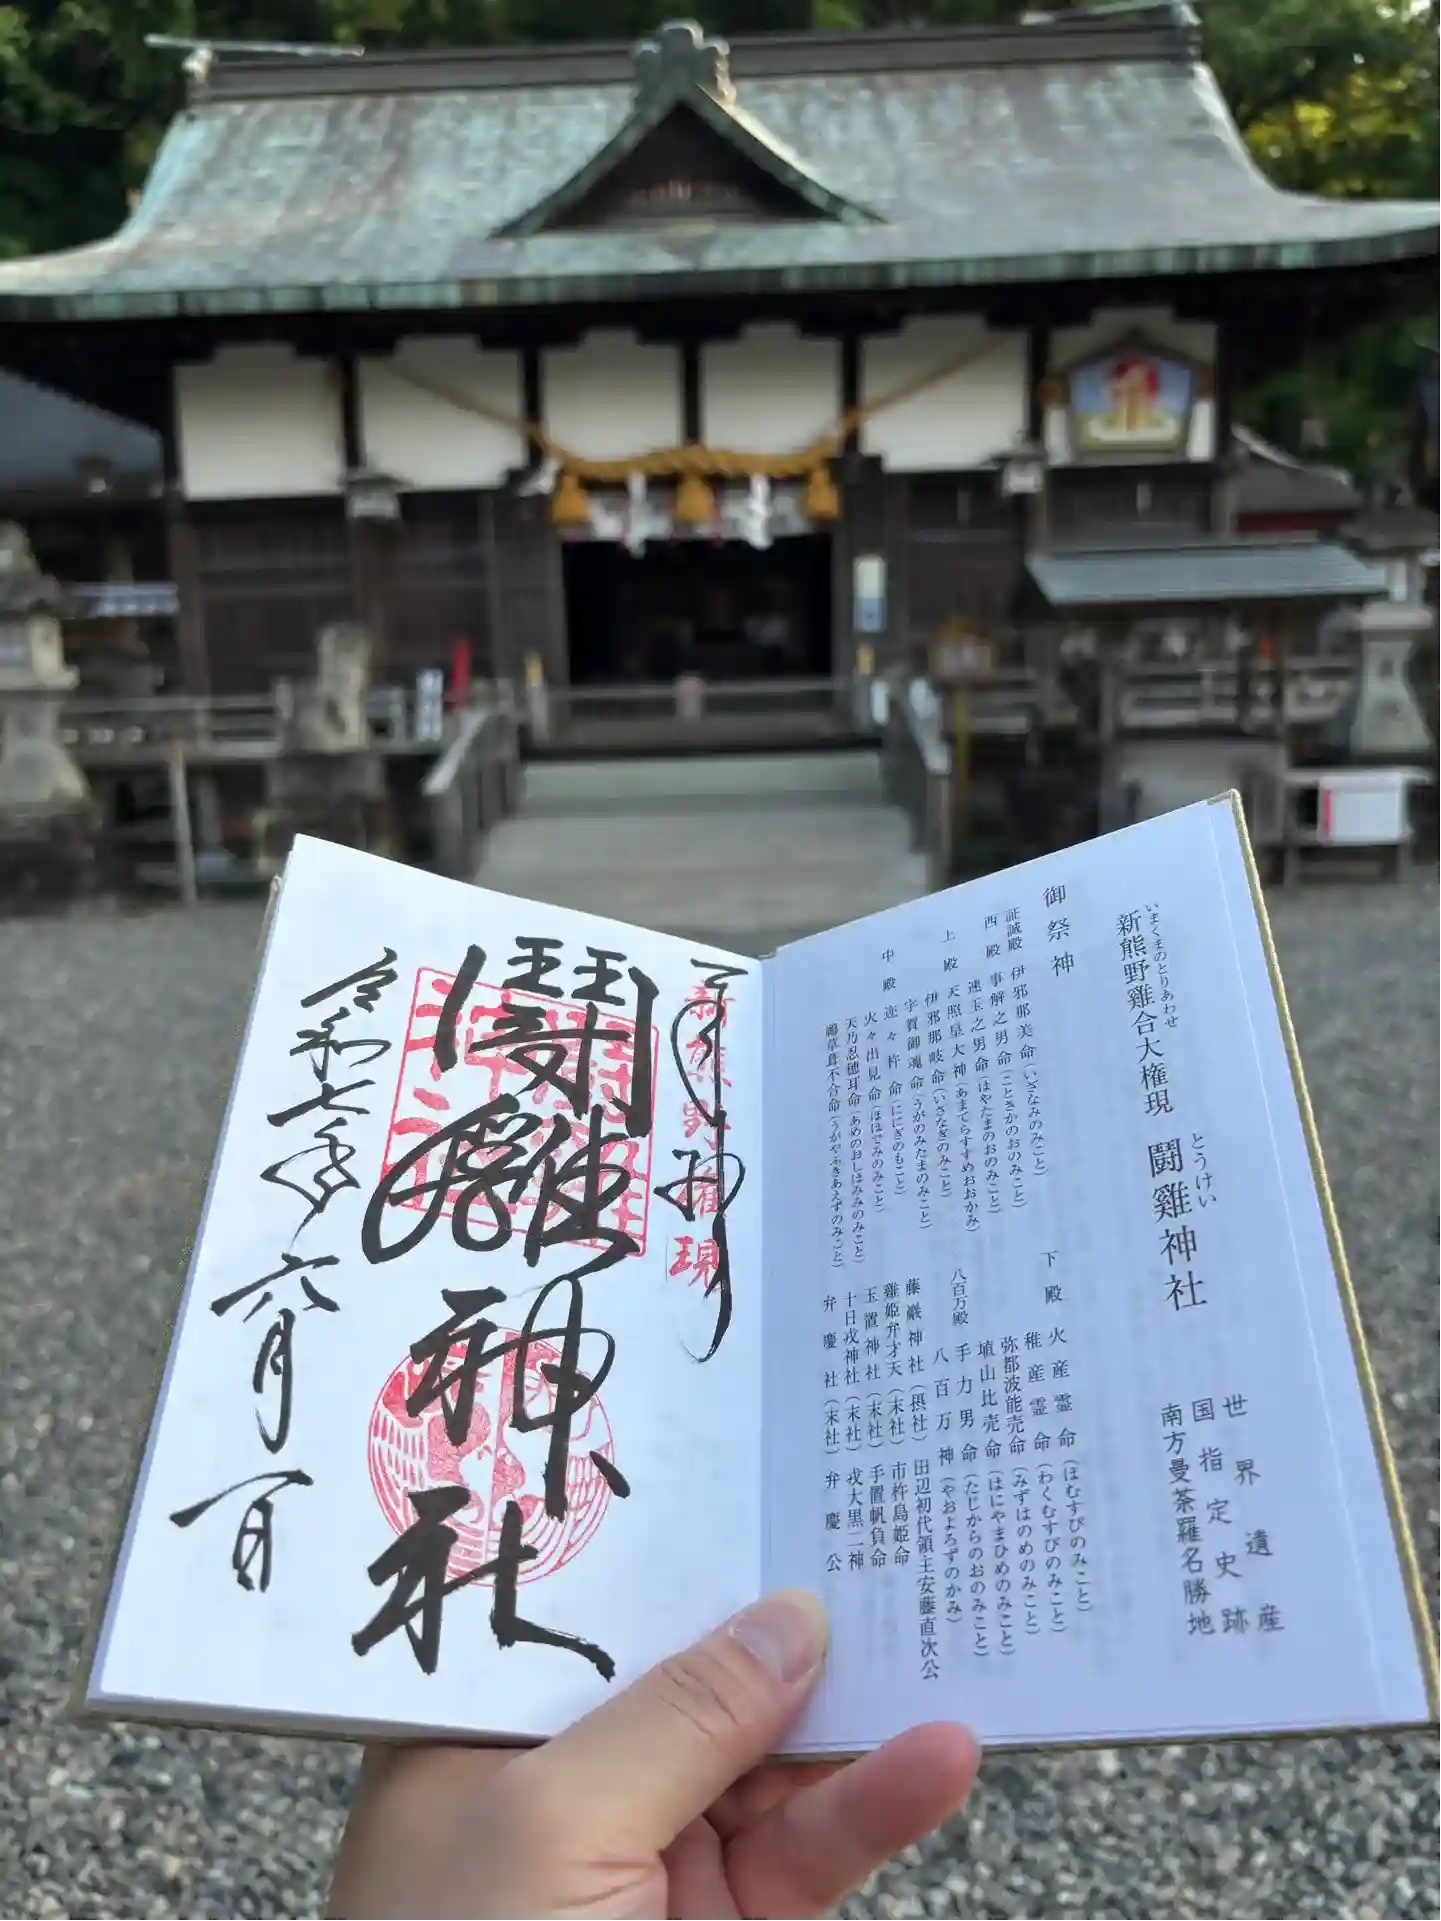 いまくまのとりあわせ
新熊野雞合大権現
とうけい
闘雞神社
世界遺産
国指定史跡
南方曼荼羅名勝地
御祭神
証誠殿 伊邪那美命(いざなみのみこと)
西殿 事解之男命(ことさかのおのみこと)
速玉之男命(はやたまのおのみこと)
上殿 天照皇大神(あまてらすすめおおかみ)
伊邪那岐命(いさなぎのみこと)
宇賀御魂命(うがのみたまのみこと)
中殿 迩々杵命(ににぎのもこと)
火々出見命(ほほでみのみこと)
天乃忍穂耳命(あめのおしほみみのみこと)
鵜草葺不合命(うがやふきあえずのみこと)
下殿 火産霊命(ほむすびのみこと)
稚産霊命(わくむすびのみこと)
弥都波能売命(みずはのめのみこと)
埴山比売命(はにやまひめのみこと)
八百万殿 手力男命(たじからのおのみこと)
八百万神(やおよろずのかみ)
藤巌神社(摂社) 田辺初代領主安藤直次公
雞姫弁才天(末社) 市杵島姫命
玉置神社(末社) 手置帆負命
十日戎神社(末社) 戎大黒二神
弁慶社(末社) 弁慶公
新熊野権現
闘雞神社
令和七年六月一日